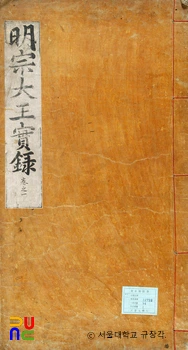 明宗大王實錄 卷之一
© 서울대학교 규장각